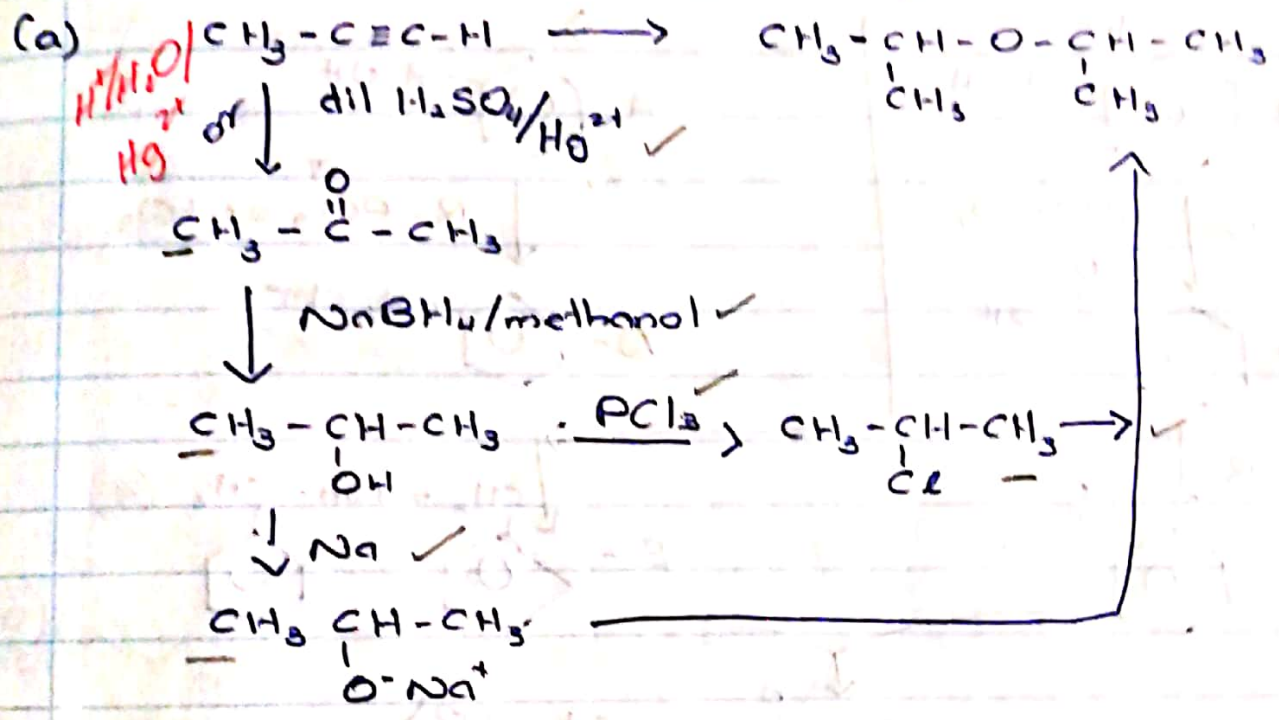 (a) CH₃-C≡C-H ⟶ CH₃-CH-O-CH-CH₃
CH₃ CH₃
H⁺/H₂O / Hg²⁺ or dil H₂SO₄/Hg²⁺ ✓
O
CH₃-C-CH₃
NaBH₄/methanol ✓
CH₃-CH-CH₃ PCl₃ ✓ CH₃-CH-CH₃ ⟶ ✓
OH Cl
Na ✓
CH₃ CH-CH₃
O⁻Na⁺